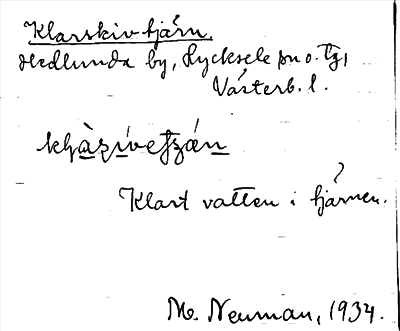 Klarskivtjärn
Hedlunda by, Lycksele sn o. tg,
Västerb. l.
Klart vatten i tjärnen.
M. Neuman, 1934.